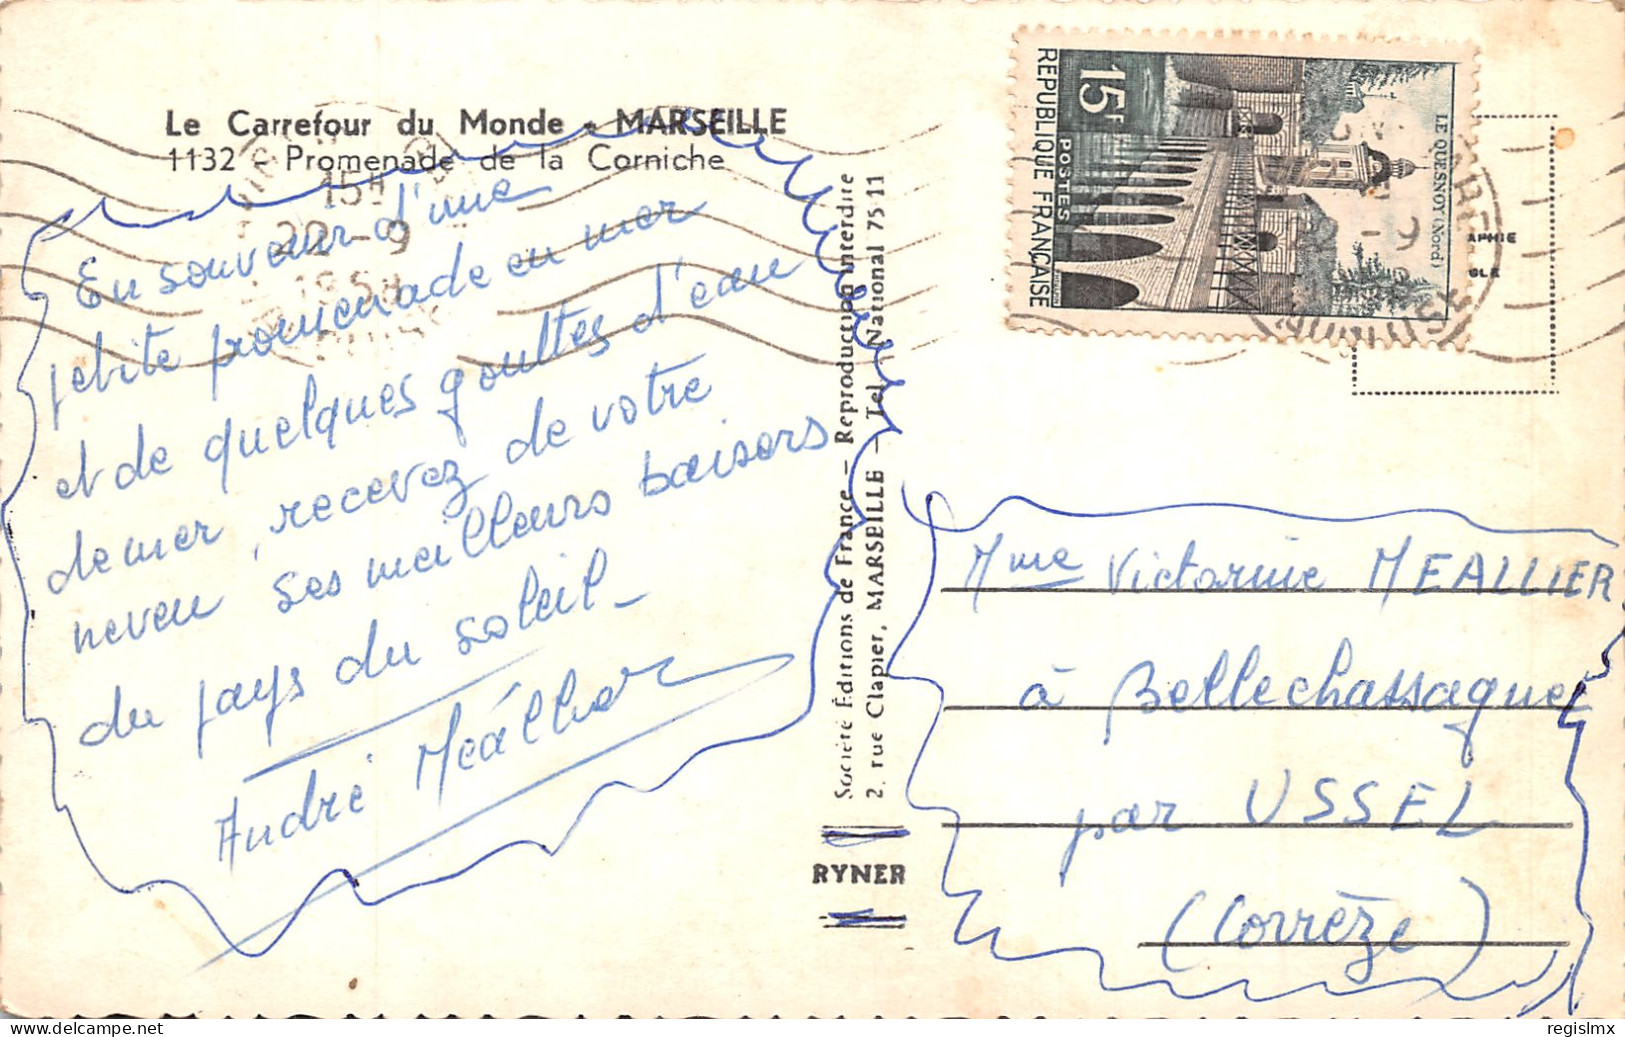 Le Carrefour du Monde - MARSEILLE
1132 - Promenade de la Corniche
15H
22 - 9
1958
En souvenir d'une
petite promenade en mer
et de quelques gouttes d'eau
de mer, recevez de votre
neveu ses meilleurs baisers
du pays du soleil -
André
Société Éditions de France - Reproduction interdite
2, rue Clapier, MARSEILLE - Tel. National 75-11
RYNER
15F
POSTES
REPUBLIQUE FRANÇAISE
LE QUESNOY (Nord)
Mme Victorine MEALLIER
à Bellechassagne
par USSEL
(Corrèze)
regislmx